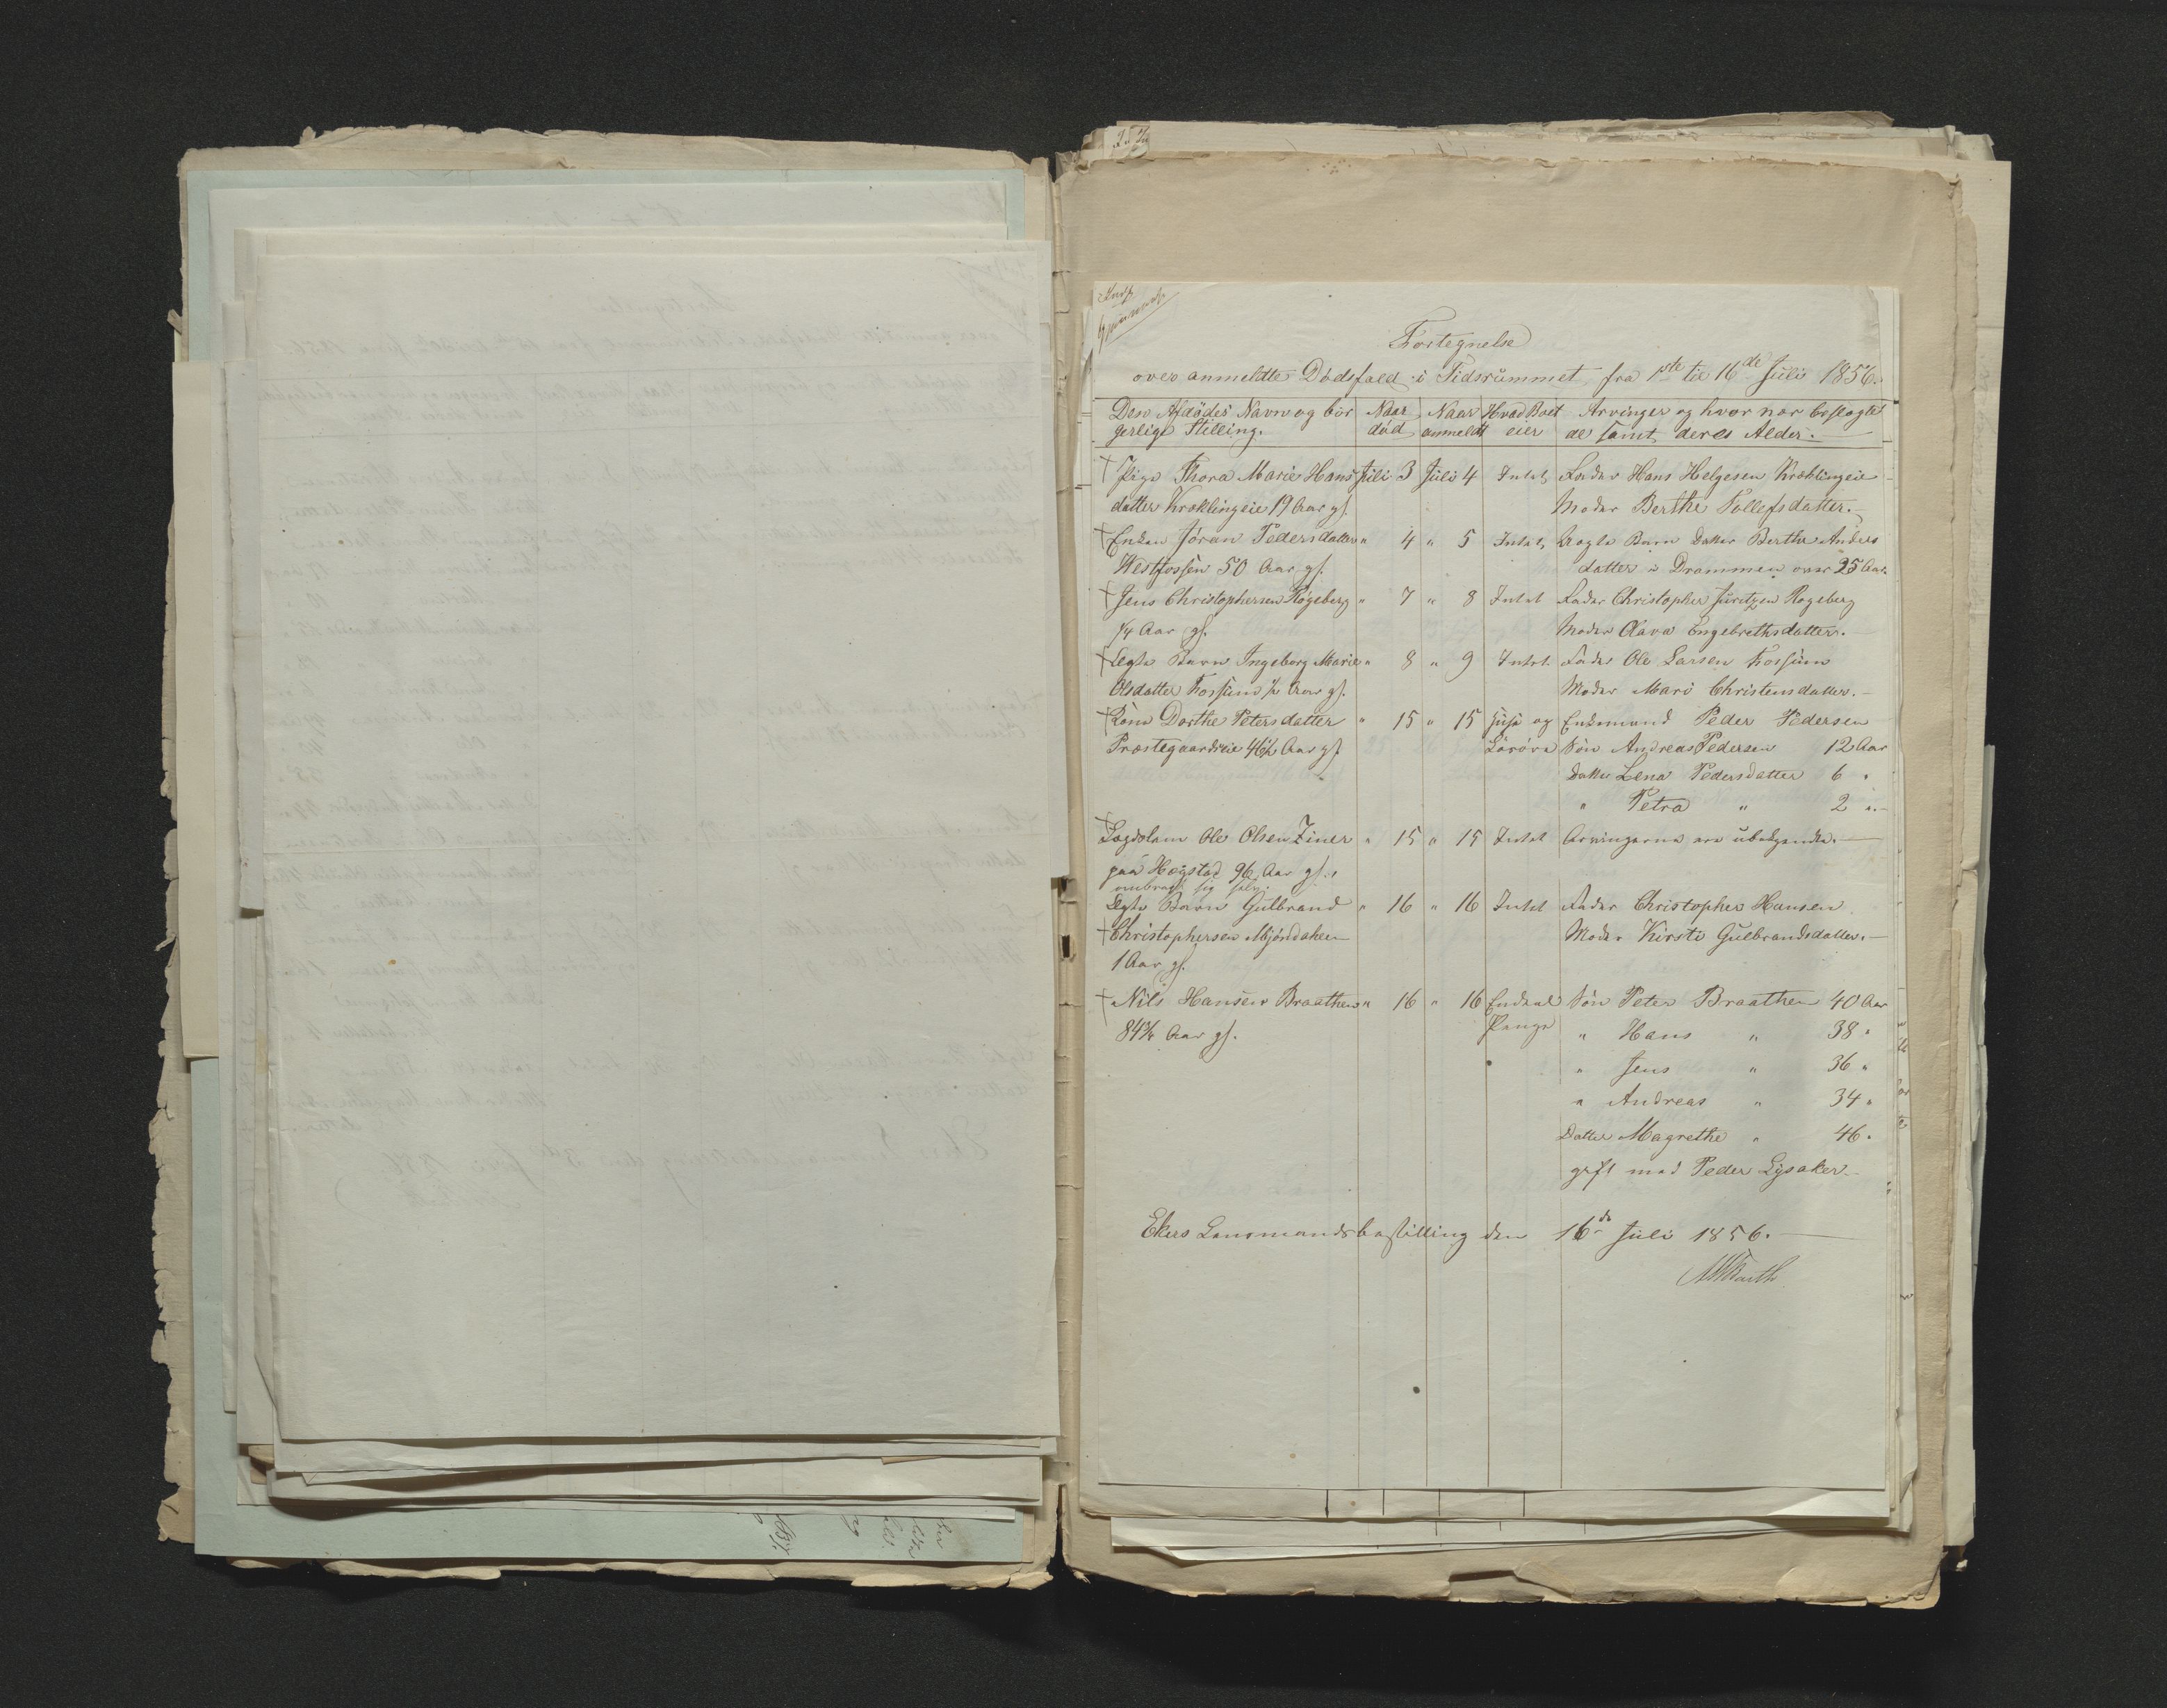 Fortegnelse
over anmeldte Dødsfald i Tidsrummet fra 1ste til 16de Juli 1856.
Den Afdødes Navn og bor Naar Naar Hvad Boet Arvinger og hvor nær beslægte
gerlige Stilling. død anmeldt eier de samt deres Alder.
† Pige Thora Marie Hans Juli 3 Juli 4 Intet Fader Hans Helgesen Kroklingeie
datter Kroklingeie 19 Aar gl. Moder Berthe Tollefsdatter.
† Enken Jøran Pedersdatter " 4 " 5 Intet Ægte Barn Datter Berthe Anders
Westfossen 50 Aar gl. datter i Drammen over 25 Aar.
† Jens Christophersen Røgeberg " 7 " 8 Intet Fader Christopher Juritzen Røgeberg
1/4 Aar gl. Moder Olava Engebrethsdatter.
† Ægte Barn Ingeborg Marie " 8 " 9 Intet Fader Ole Larsen Fossum
Olsdatter Fossum 1/2 Aar gl. Moder Mari Christensdatter.
† Kone Dorthe Petersdatter " 15 " 15 Huse og Enkemand Peder Pedersen
Præstegaardseie 46 1/2 Aar gl. Løsøre Søn Andreas Pedersen 12 Aar
Datter Lena Pedersdatter 6 "
" Petra " 2 "
† Lægdslem Ole Olsen Ziner " 15 " 15 Intet Arvingerne ere ubekjendte.
paa Hægstad 96 Aar gl.
ombragt sig selv.
Ægte Barn Gulbrand " 16 " 16 Intet Fader Christopher Hansen
† Christophersen Mjøndalen Moder Kirsti Gulbrandsdatter.
1 Aar gl.
† Nils Hansen Braathen " 16 " 16 Endeel Søn Peter Braathen 40 Aar
84 1/2 Aar gl. Penge " Hans " 38 "
" Jens " 36 "
" Andreas " 34 "
Datter Magrethe " 46 "
gift med Peder Lysaker
Ekers Lensmandsbestilling den 16de Juli 1856.